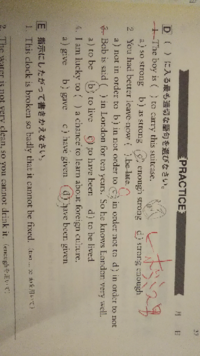 PRACTICE
月 日
D ( )に入る最も適切な語句を選びなさい。
1. The boy ( ) to carry this suitcase.
a) so strong c) enough strong d) strong enough
2. You had better leave now ( ) be late.
a) not in order to b) in not order to c) in order not to d) in order to not
3. Bob is said ( ) in London for ten years. So he knows London very well.
a) to be b) to live c) to have been d) to be lived
4. I am lucky to ( ) a chance to learn about foreign culture.
a) give b) gave c) have given d) have been given
E 指示にしたがって書きかえなさい。
1. This clock is broken so badly that it cannot be fixed.
2. The water is not very clean, so you cannot drink it.